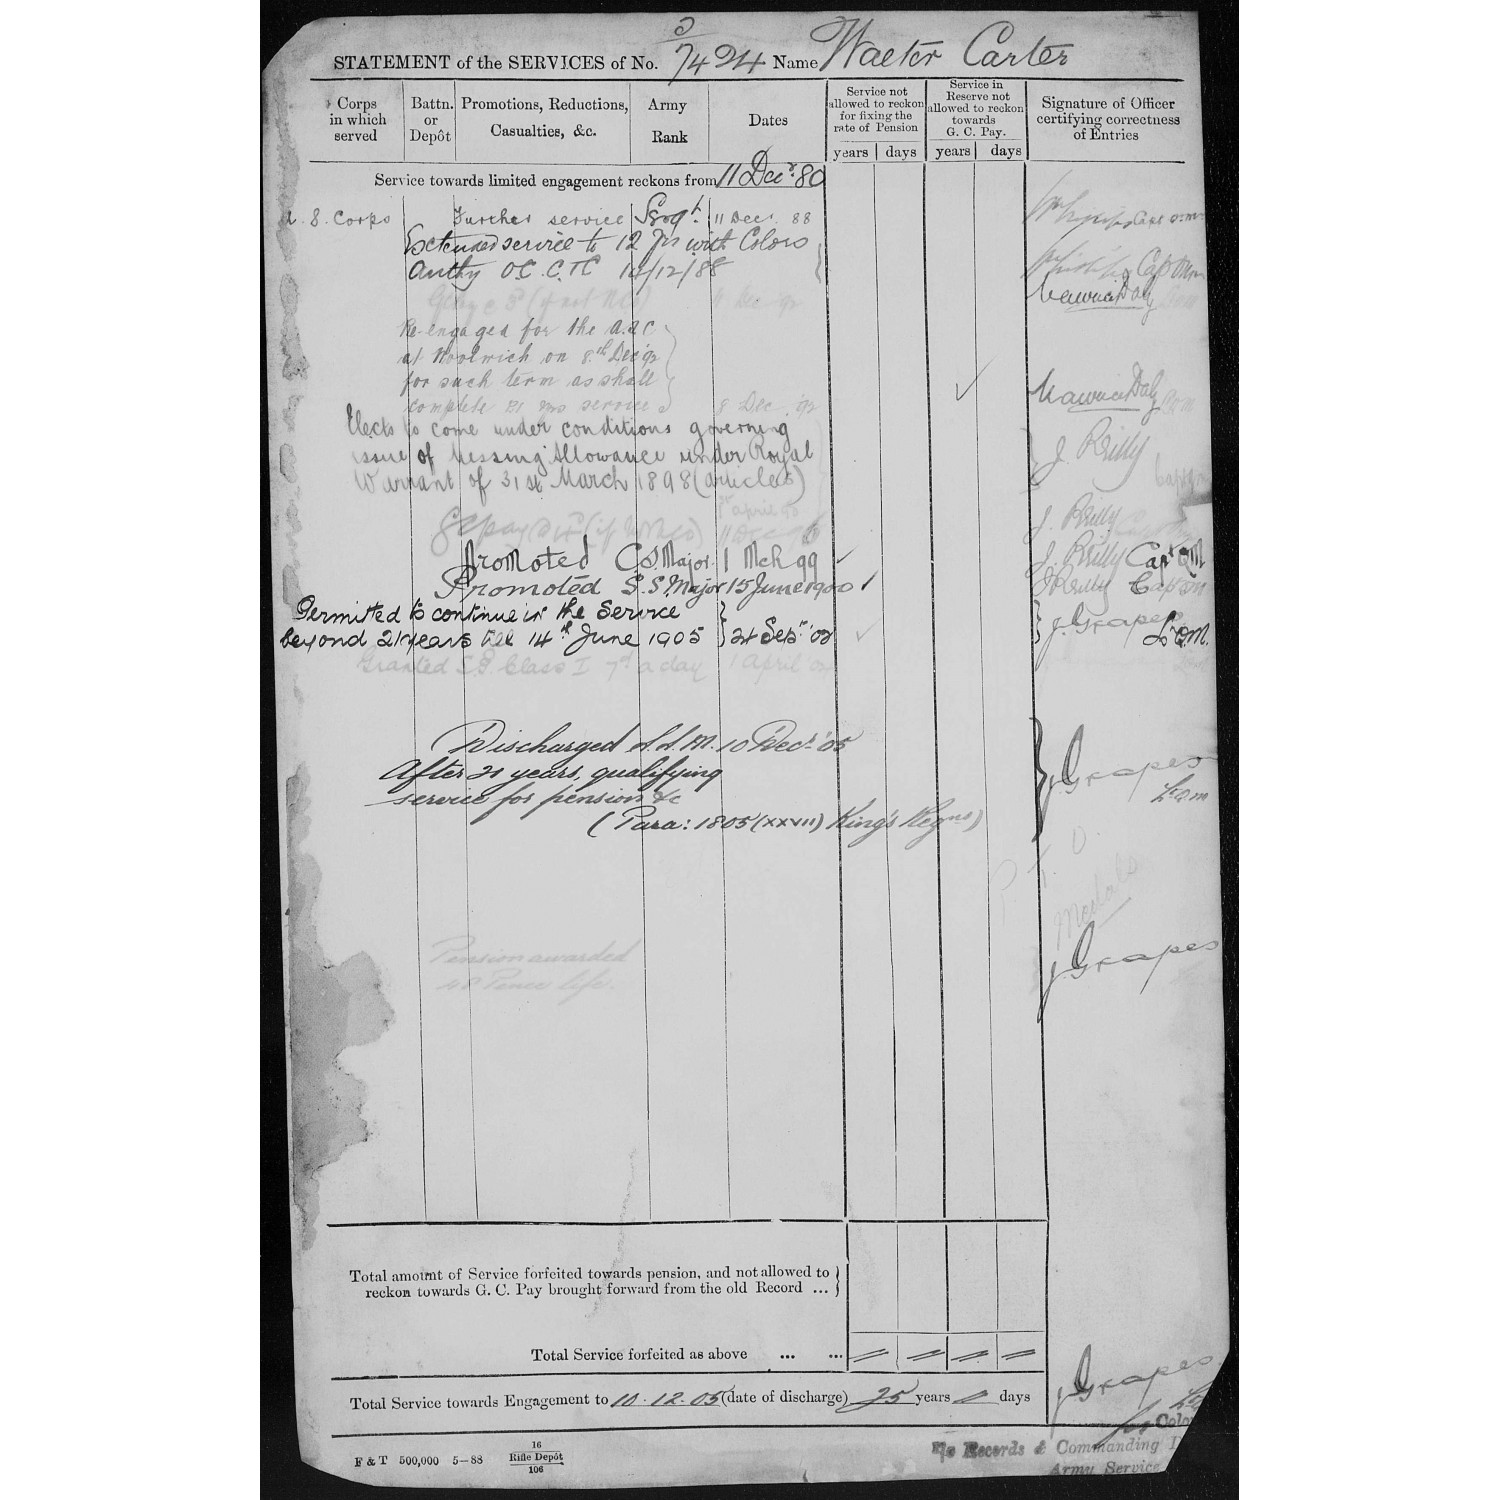 STATEMENT of the SERVICES of No. S/7424 Name Walter Carter
Corps in which served
Battn. or Depôt
Promotions, Reductions, Casualties, &c.
Army Rank
Dates
Service not allowed to reckon for fixing the rate of Pension
years days
Service in Reserve not allowed to reckon towards G. C. Pay.
years days
Signature of Officer certifying correctness of Entries
Service towards limited engagement reckons from 11 Decr. 80
S. Corps Further service Sergt. 11 Decr. 88
Extended service to 12 yrs with Colors
Authy O.C. C.T.C 14/12/88
11 Dec 92
Re-engaged for the A.S.C
at Woolwich on 8th Dec '92
for such term as shall
complete 21 yrs service 8 Dec '92
Elects to come under conditions governing
issue of Messing Allowance under Royal J. Reilly
Warrant of 31st March 1898 (article)
1st april 98
J. Reilly
Promoted C.S. Major 1 Mch 99 J. Reilly Capt QM
Promoted S.S. Major 15 June 1900 J. Reilly Capt QM
Permitted to continue in the Service
beyond 21 years till 14th June 1905 24 Sepr. '02 J. Grapes Lt. QM.
Granted Class I 7d a day 1 april '02
Discharged S.S.M. 10 Decr. '05
After 21 years, qualifying J Grapes
service for pension &c Lt. Q.M
(Para: 1805 (XXVIII) King's Regns)
P. T. O
Medals
Pension awarded J Grapes
Pence life.
Total amount of Service forfeited towards pension, and not allowed to
reckon towards G. C. Pay brought forward from the old Record ...
Total Service forfeited as above ... ...
Total Service towards Engagement to 10.12.05 (date of discharge) 25 years 0 days
J Grapes
for Colo
Records & Commanding
Army Service
F & T 500,000 5—88 16 Rifle Depôt 106